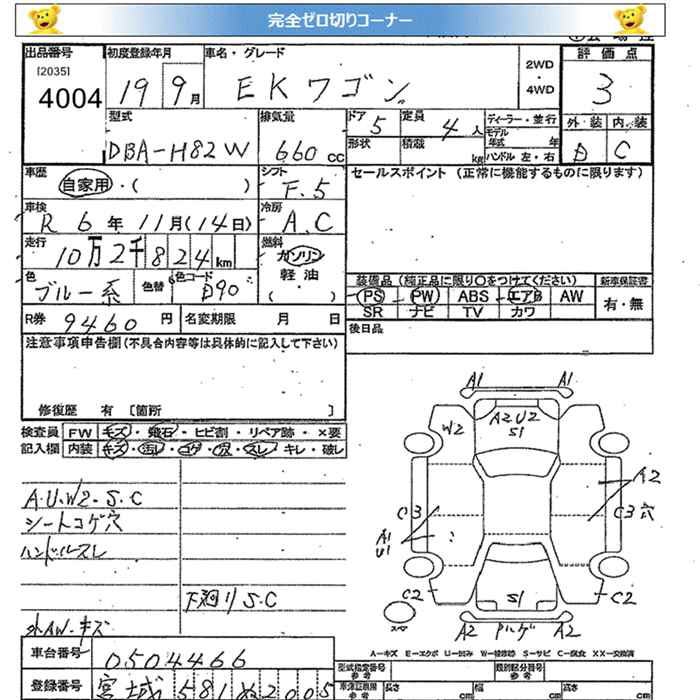 完全ゼロ切りコーナー
出品番号 初度登録年月 車名・グレード 2WD・4WD 評価点
[2035]
4004 19 9月 EKワゴン 3
型式 排気量 ドア 定員 ディーラー・並行 外装 内装
DBA-H82W 660cc 5 4人 モデル年式 年 D C
形状 積載 kg ハンドル 左・右
車歴 シフト セールスポイント (正常に機能するものに限ります)
自家用・( ) F.5
車検 冷房
R 6年 11月(14日) A.C
走行 燃料
10万2千824km ガソリン
軽油
( )
色 色替 色コード 装備品 (純正品に限り○をつけてください) 新車保証書
ブルー系 D90 PS PW ABS エアB AW 有・無
SR ナビ TV カワ
R券 9460円 名変期限 月 日 後日品
注意事項申告欄(不具合内容等は具体的に記入して下さい)
修復歴 有 [箇所 ]
検査員 FW キズ・飛石・ヒビ割・リペア跡・×要
記入欄 内装 キズ・汚レ・コゲ・穴・スレ・キレ・破レ
A1 A1
A2U2
S1
W2
A2
A.U.W2.S.C
C3 C3 穴
シートコゲ穴
A1
U1
ハンドルスレ
下廻りS.C
C2 S1 C2
A2 A2
外AW.キズ
車台番号 0504466
A−キズ E−エクボ U−凹み W−補修跡 S−サビ C−腐食 XX−交換済
登録番号 宮城 581 ぬ 2005
型式指定番号 参考 類別区分番号 参考
車体関係 参考 長さ cm 幅 cm 高さ cm